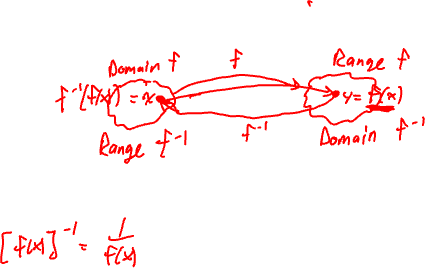 Domain f
f
Range f
f⁻¹(f(x)) = x
y = f(x)
f⁻¹
Range f⁻¹
Domain f⁻¹
[f(x)]⁻¹ = 1/f(x)